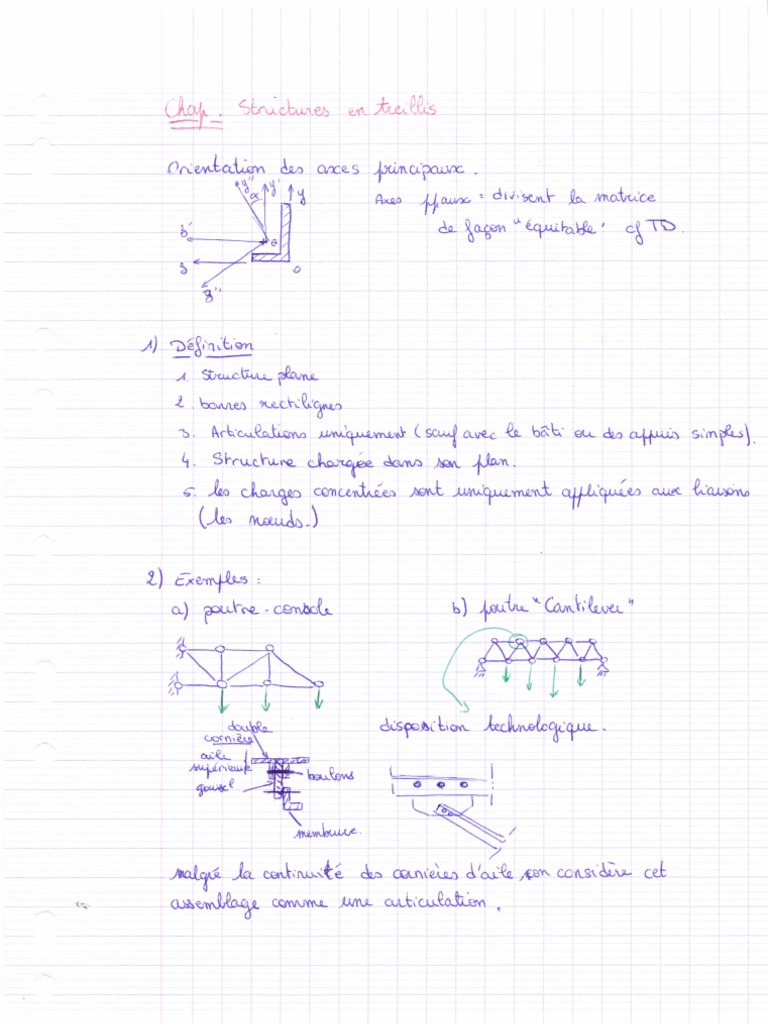 Chap. Structures en treillis
Orientation des axes principaux.
y'' y' y
α
Axes ppaux = divisent la matrice
de façon "équitable" cf TD.
z'
G
z
o
z''
1) Définition
1. Structure plane
2. barres rectilignes
3. Articulations uniquement (sauf avec le bâti ou des appuis simples).
4. Structure chargée dans son plan.
5. les charges concentrées sont uniquement appliquées aux liaisons
(les nœuds.)
2) Exemples :
a) poutre-console
b) poutre "Cantilever"
disposition technologique.
double
cornière
aile
supérieure
gousset
boulons
membrure.
malgré la continuité des cornières d'aile, on considère cet
assemblage comme une articulation.